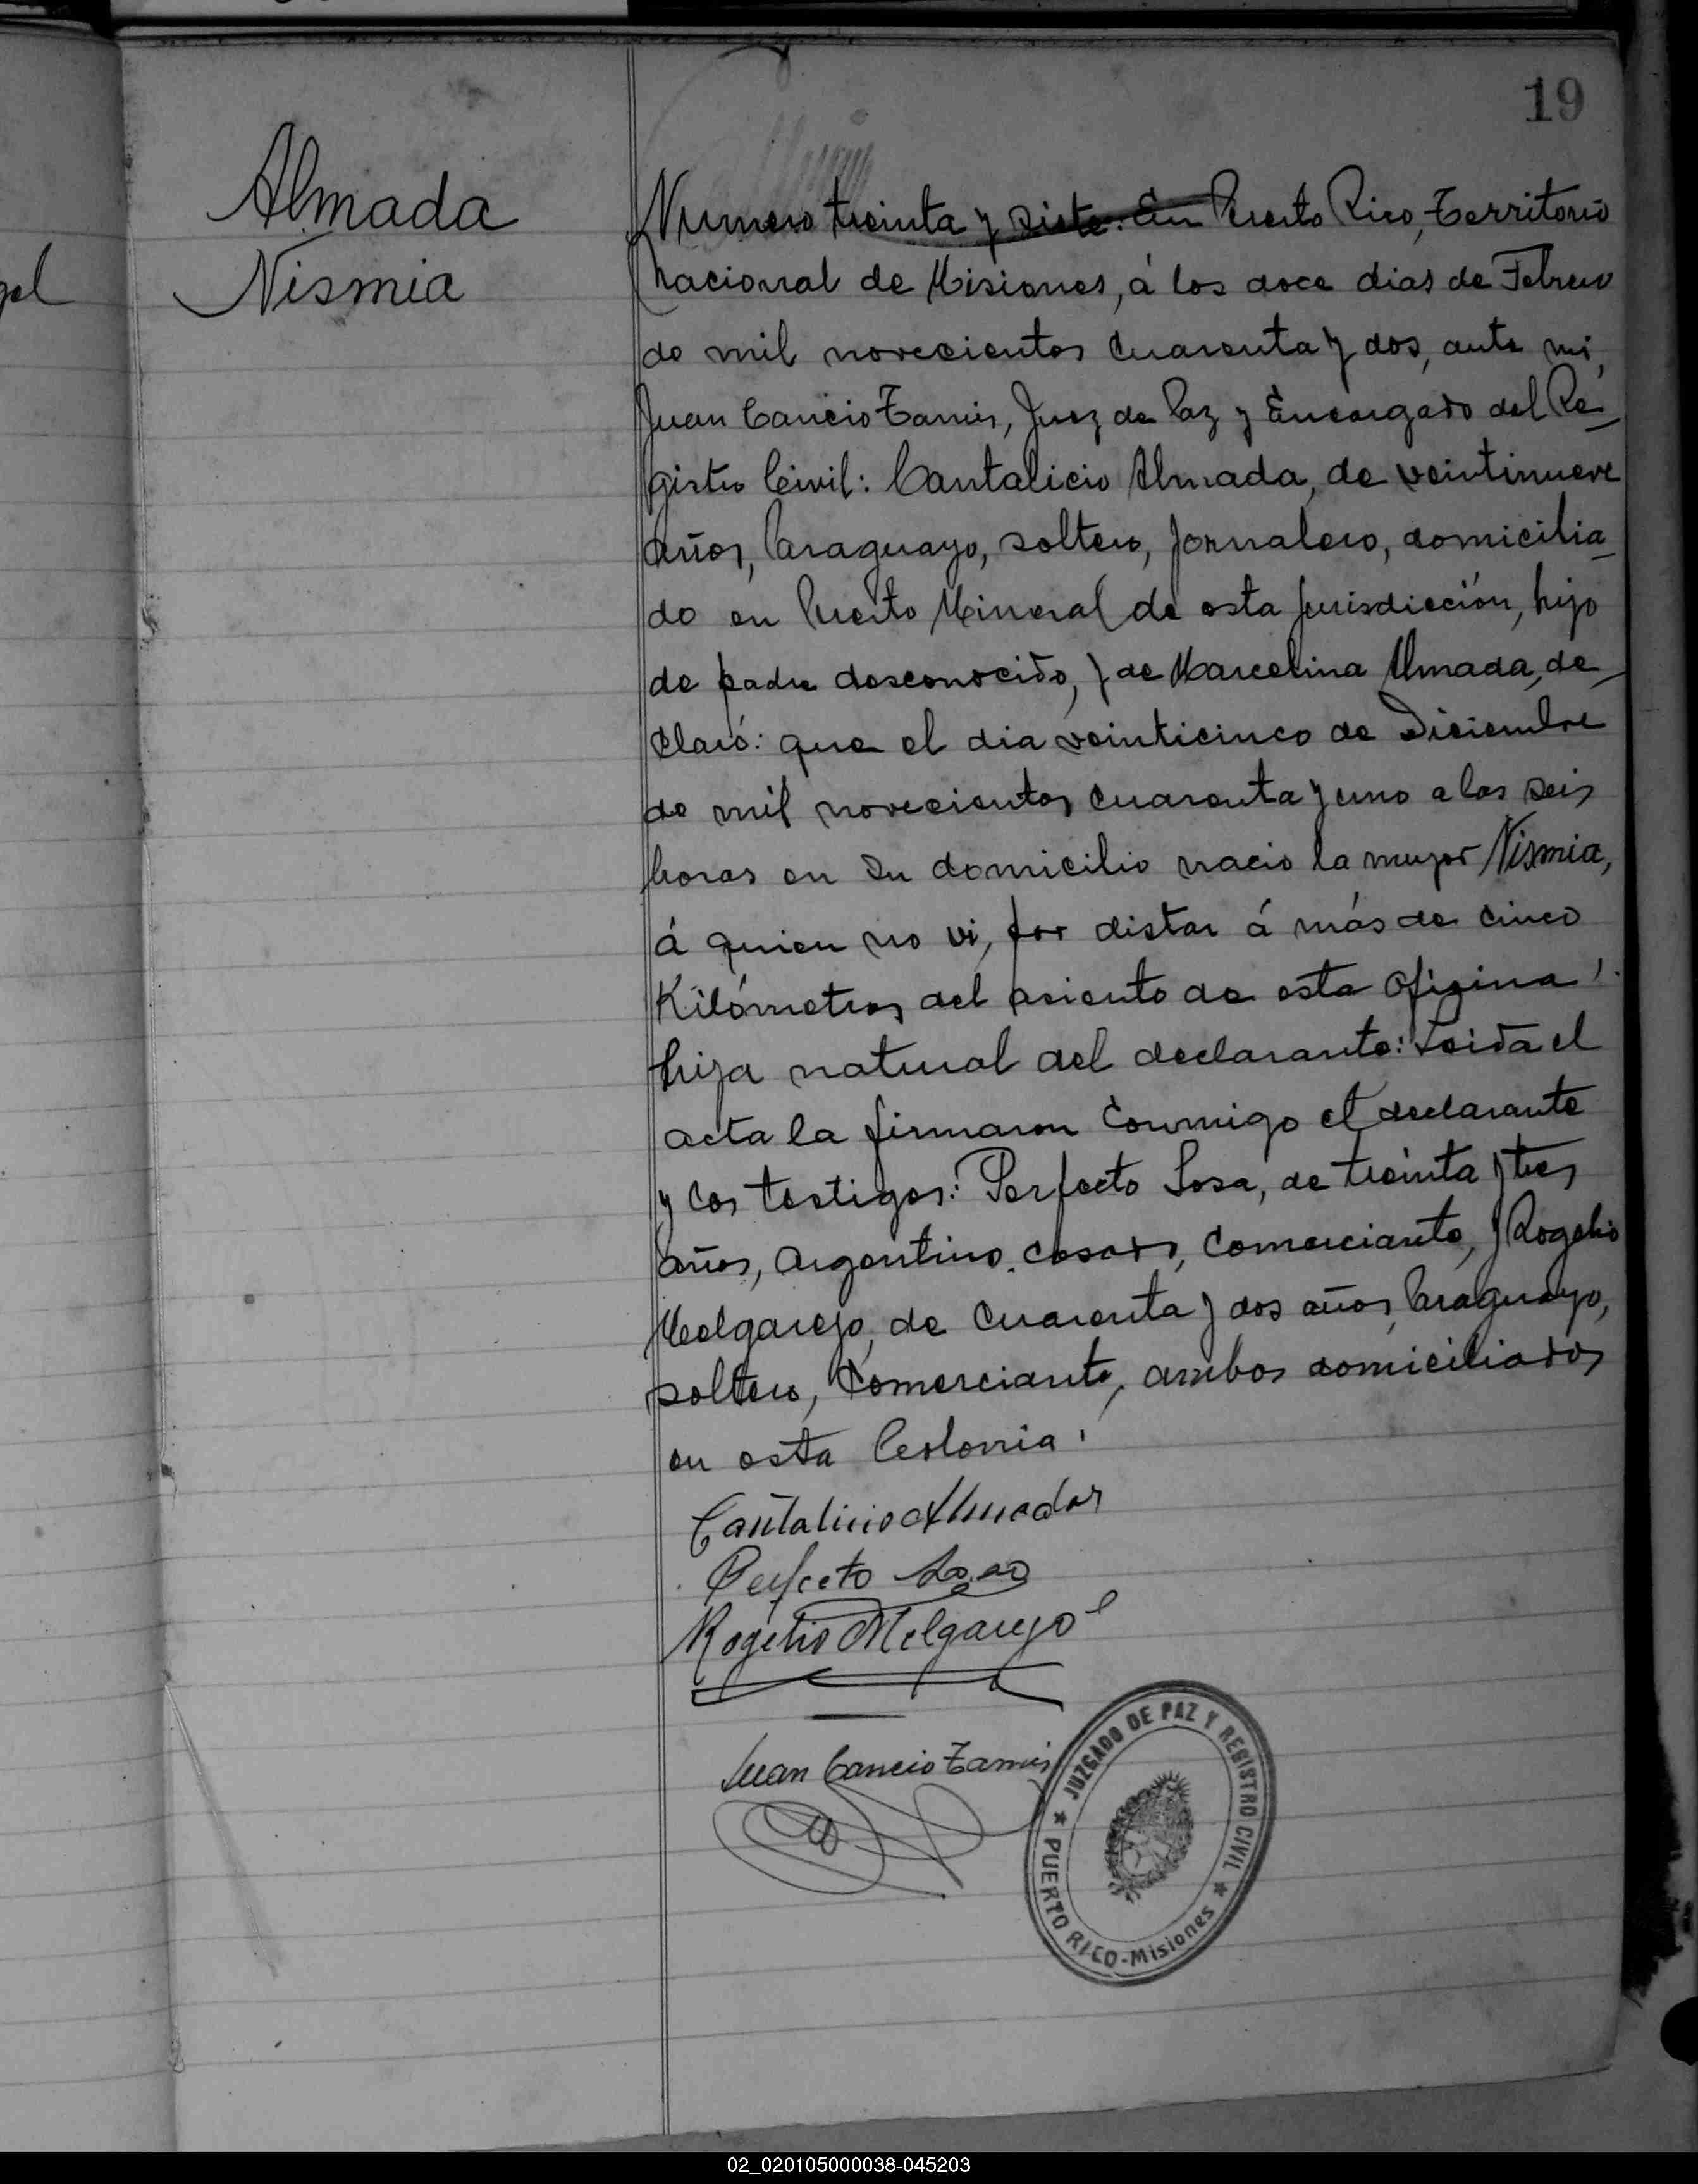 19
Almada
Nismia
Numero treinta y siete. En Puerto Rico, Territorio
nacional de Misiones, á los doce dias de Febrero
de mil novecientos cuarenta y dos, ante mi,
Juan Cancio Zamis, Juez de Paz y Encargado del Re-
gistro Civil: Cantalicio Almada, de veintinueve
años, Paraguayo, soltero, jornalero, domicilia-
do en Puerto Mineral de esta jurisdicción, hijo
de padre desconocido, y de Marcelina Almada, de-
claró: que el dia veinticinco de Diciembre
de mil novecientos cuarenta y uno a las seis
horas en su domicilio nacio la mujer Nismia,
á quien no vi, por distar á más de cinco
Kilómetros del asiento de esta ofizina.
hija natural del declarante: Leida el
acta la firmaron conmigo el declarante
y los testigos: Perfecto Sosa, de treinta y tres
años, argentino, casado, comerciante, y Rogelio
Melgarejo, de cuarenta y dos años, Paraguayo,
soltero, comerciante, ambos domiciliados
en esta Colonia.
Cantalicio Almada
Perfecto Sosa
Rogelio Melgarejo
Juan Cancio Zamis
JUZGADO DE PAZ Y REGISTRO CIVIL
PUERTO RICO-Misiones
02_020105000038-045203